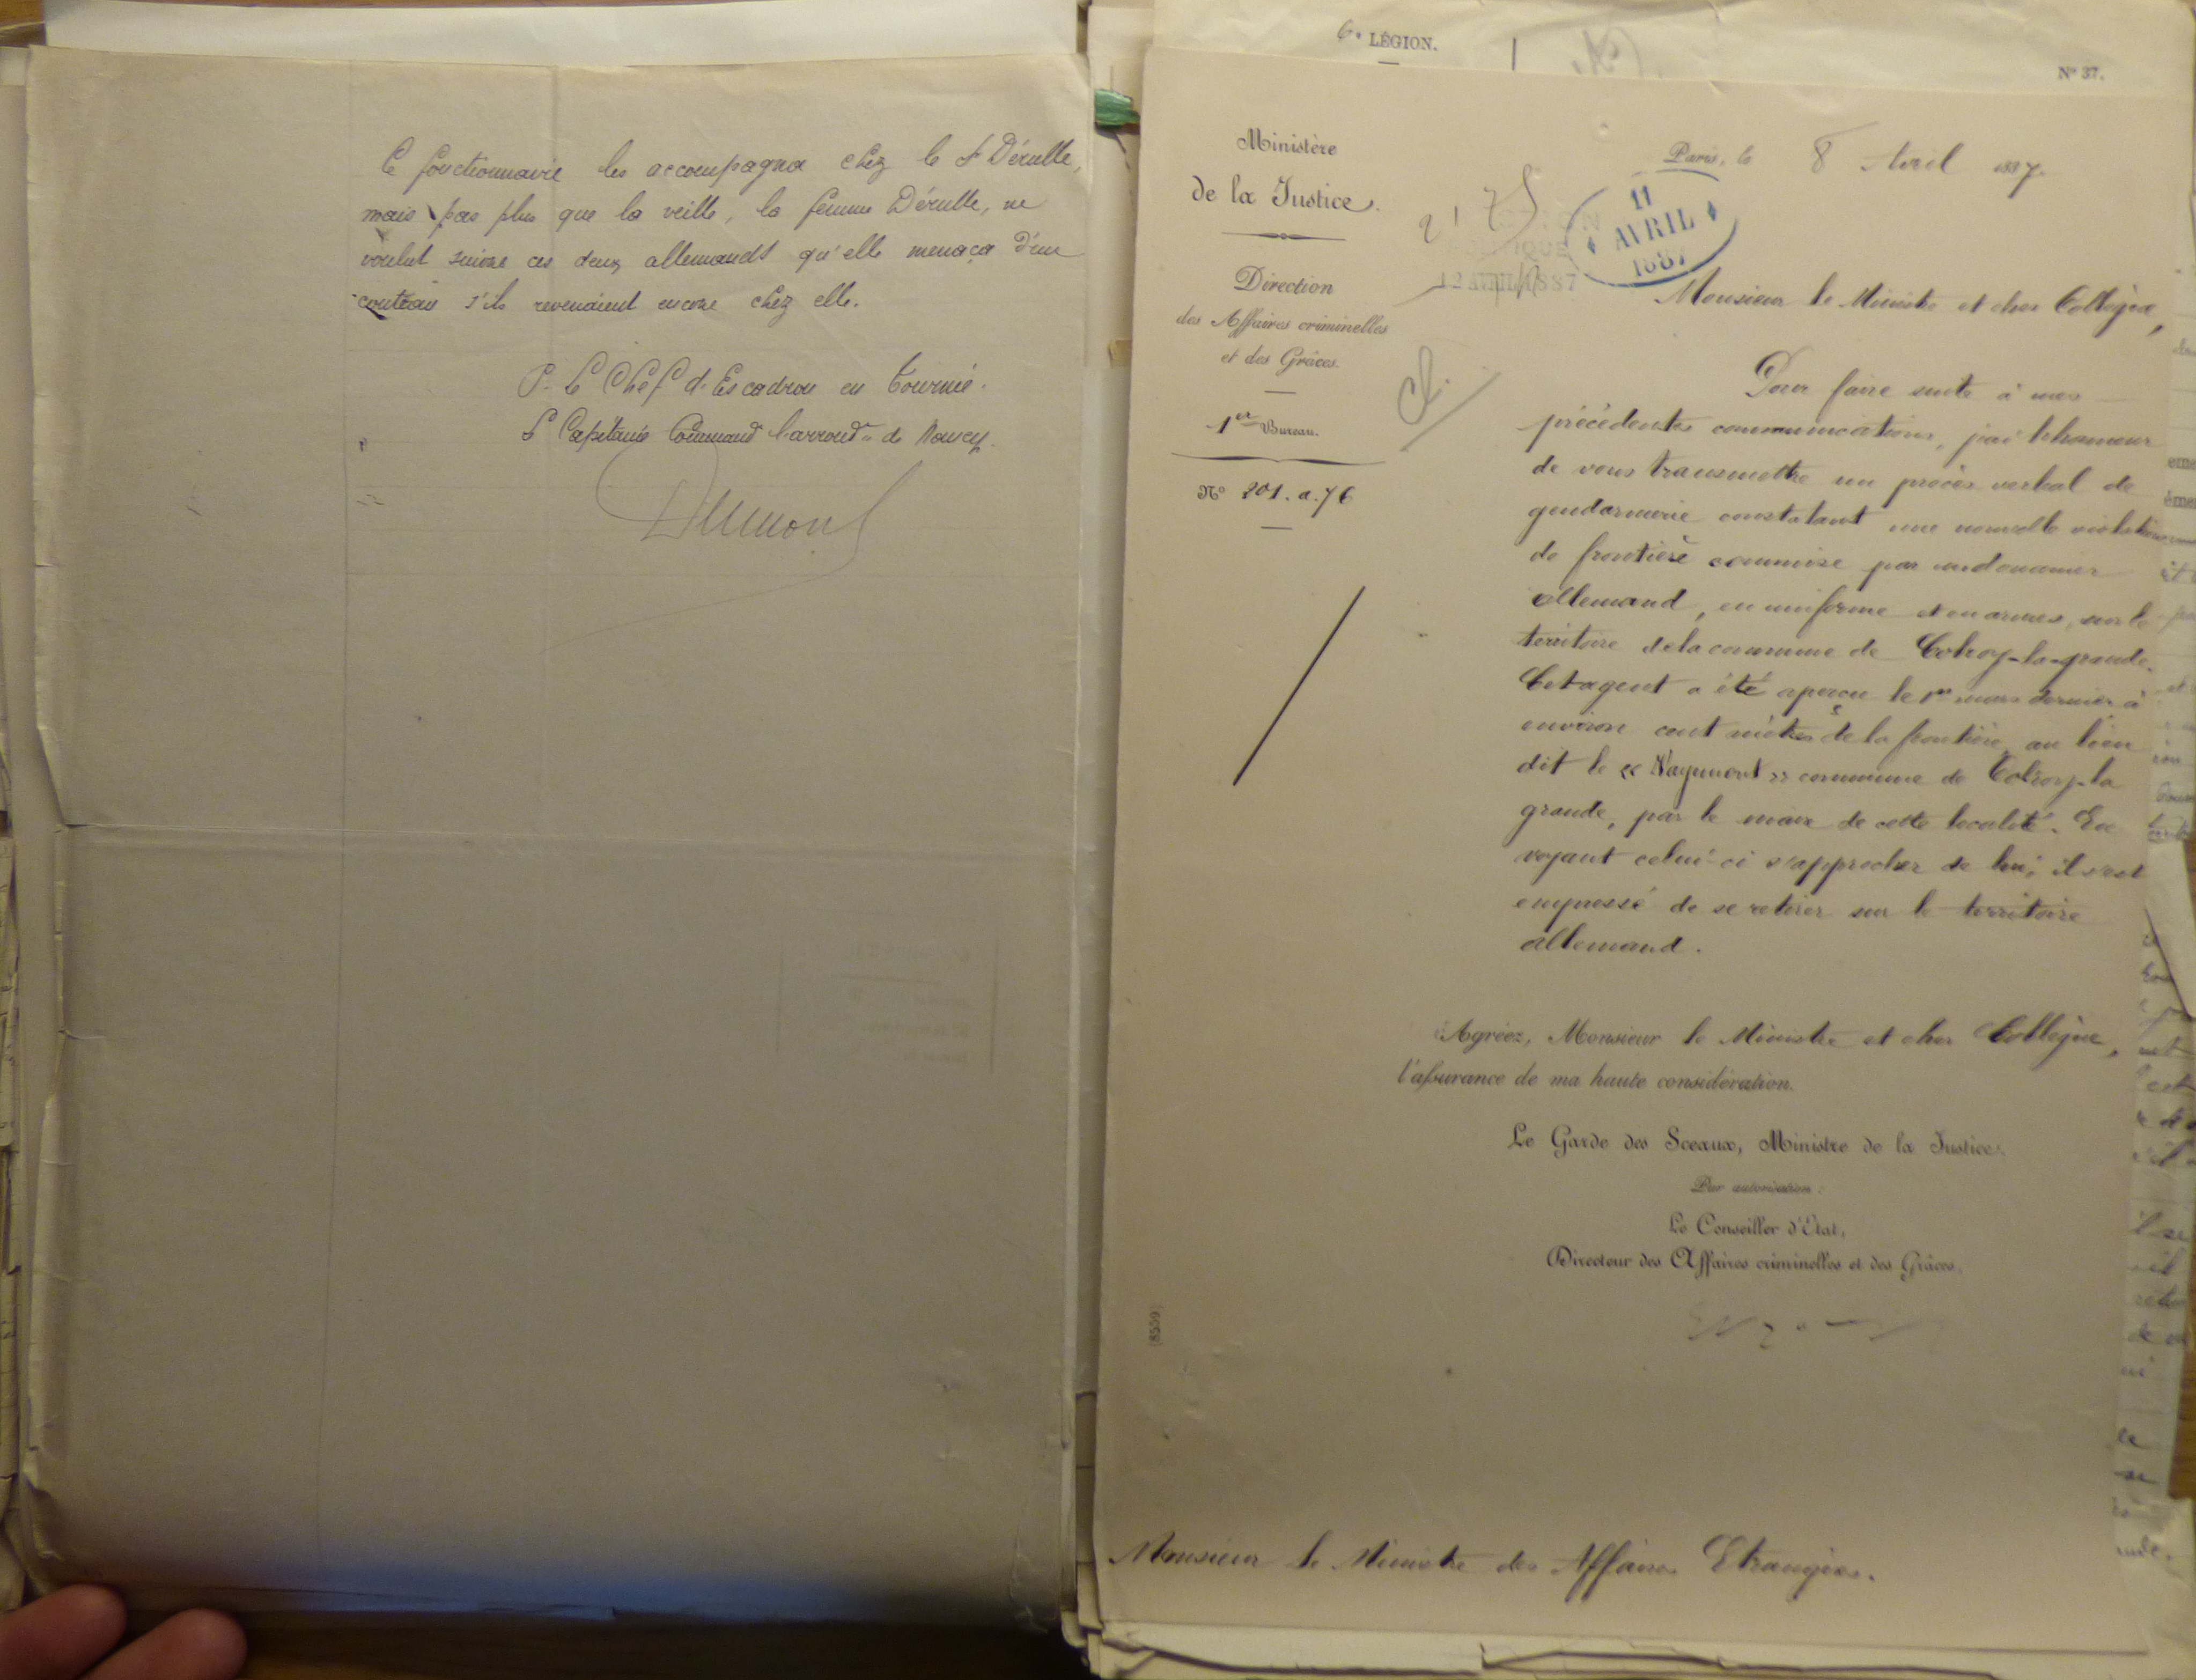 Ce fonctionnaire les accompagna chez le Sr Dérulle,
mais pas plus que la veille, la femme Dérulle, ne
voulut suivre ces deux allemands qu'elle menaça d'un
couteau s'ils revenaient encore chez elle.
P. Le Chef d'Escadron en Tournée.
Le Capitaine Command l'arrondt de Nancy.
6e LÉGION.
N° 37.
Ministère
de la Justice.
Direction
des Affaires criminelles
et des Grâces.
1er Bureau.
N° 201.a.76
Paris, le 8 Avril 1887.
11
AVRIL
1887
12 AVRIL 1887
Monsieur le Ministre et cher Collègue,
Pour faire suite à mes
précédentes communications, j'ai l'honneur
de vous transmettre un procès verbal de
gendarmerie constatant une nouvelle violation
de frontière commise par un douanier
allemand, en uniforme et en armes, sur le
territoire de la commune de Colroy-la-grande.
Cet agent a été aperçu le 1er mars dernier à
environ cent mètres de la frontière, au lieu
dit le « Naymont » commune de Colroy-la
grande, par le maire de cette localité. En
voyant celui-ci s'approcher de lui, il s'est
empressé de se retirer sur le territoire
allemand.
Agréez, Monsieur le Ministre et cher Collègue,
l'assurance de ma haute considération.
Le Garde des Sceaux, Ministre de la Justice.
Par autorisation :
Le Conseiller d'État,
Directeur des Affaires criminelles et des Grâces,
(8559)
Monsieur le Ministre des Affaires Etrangères.